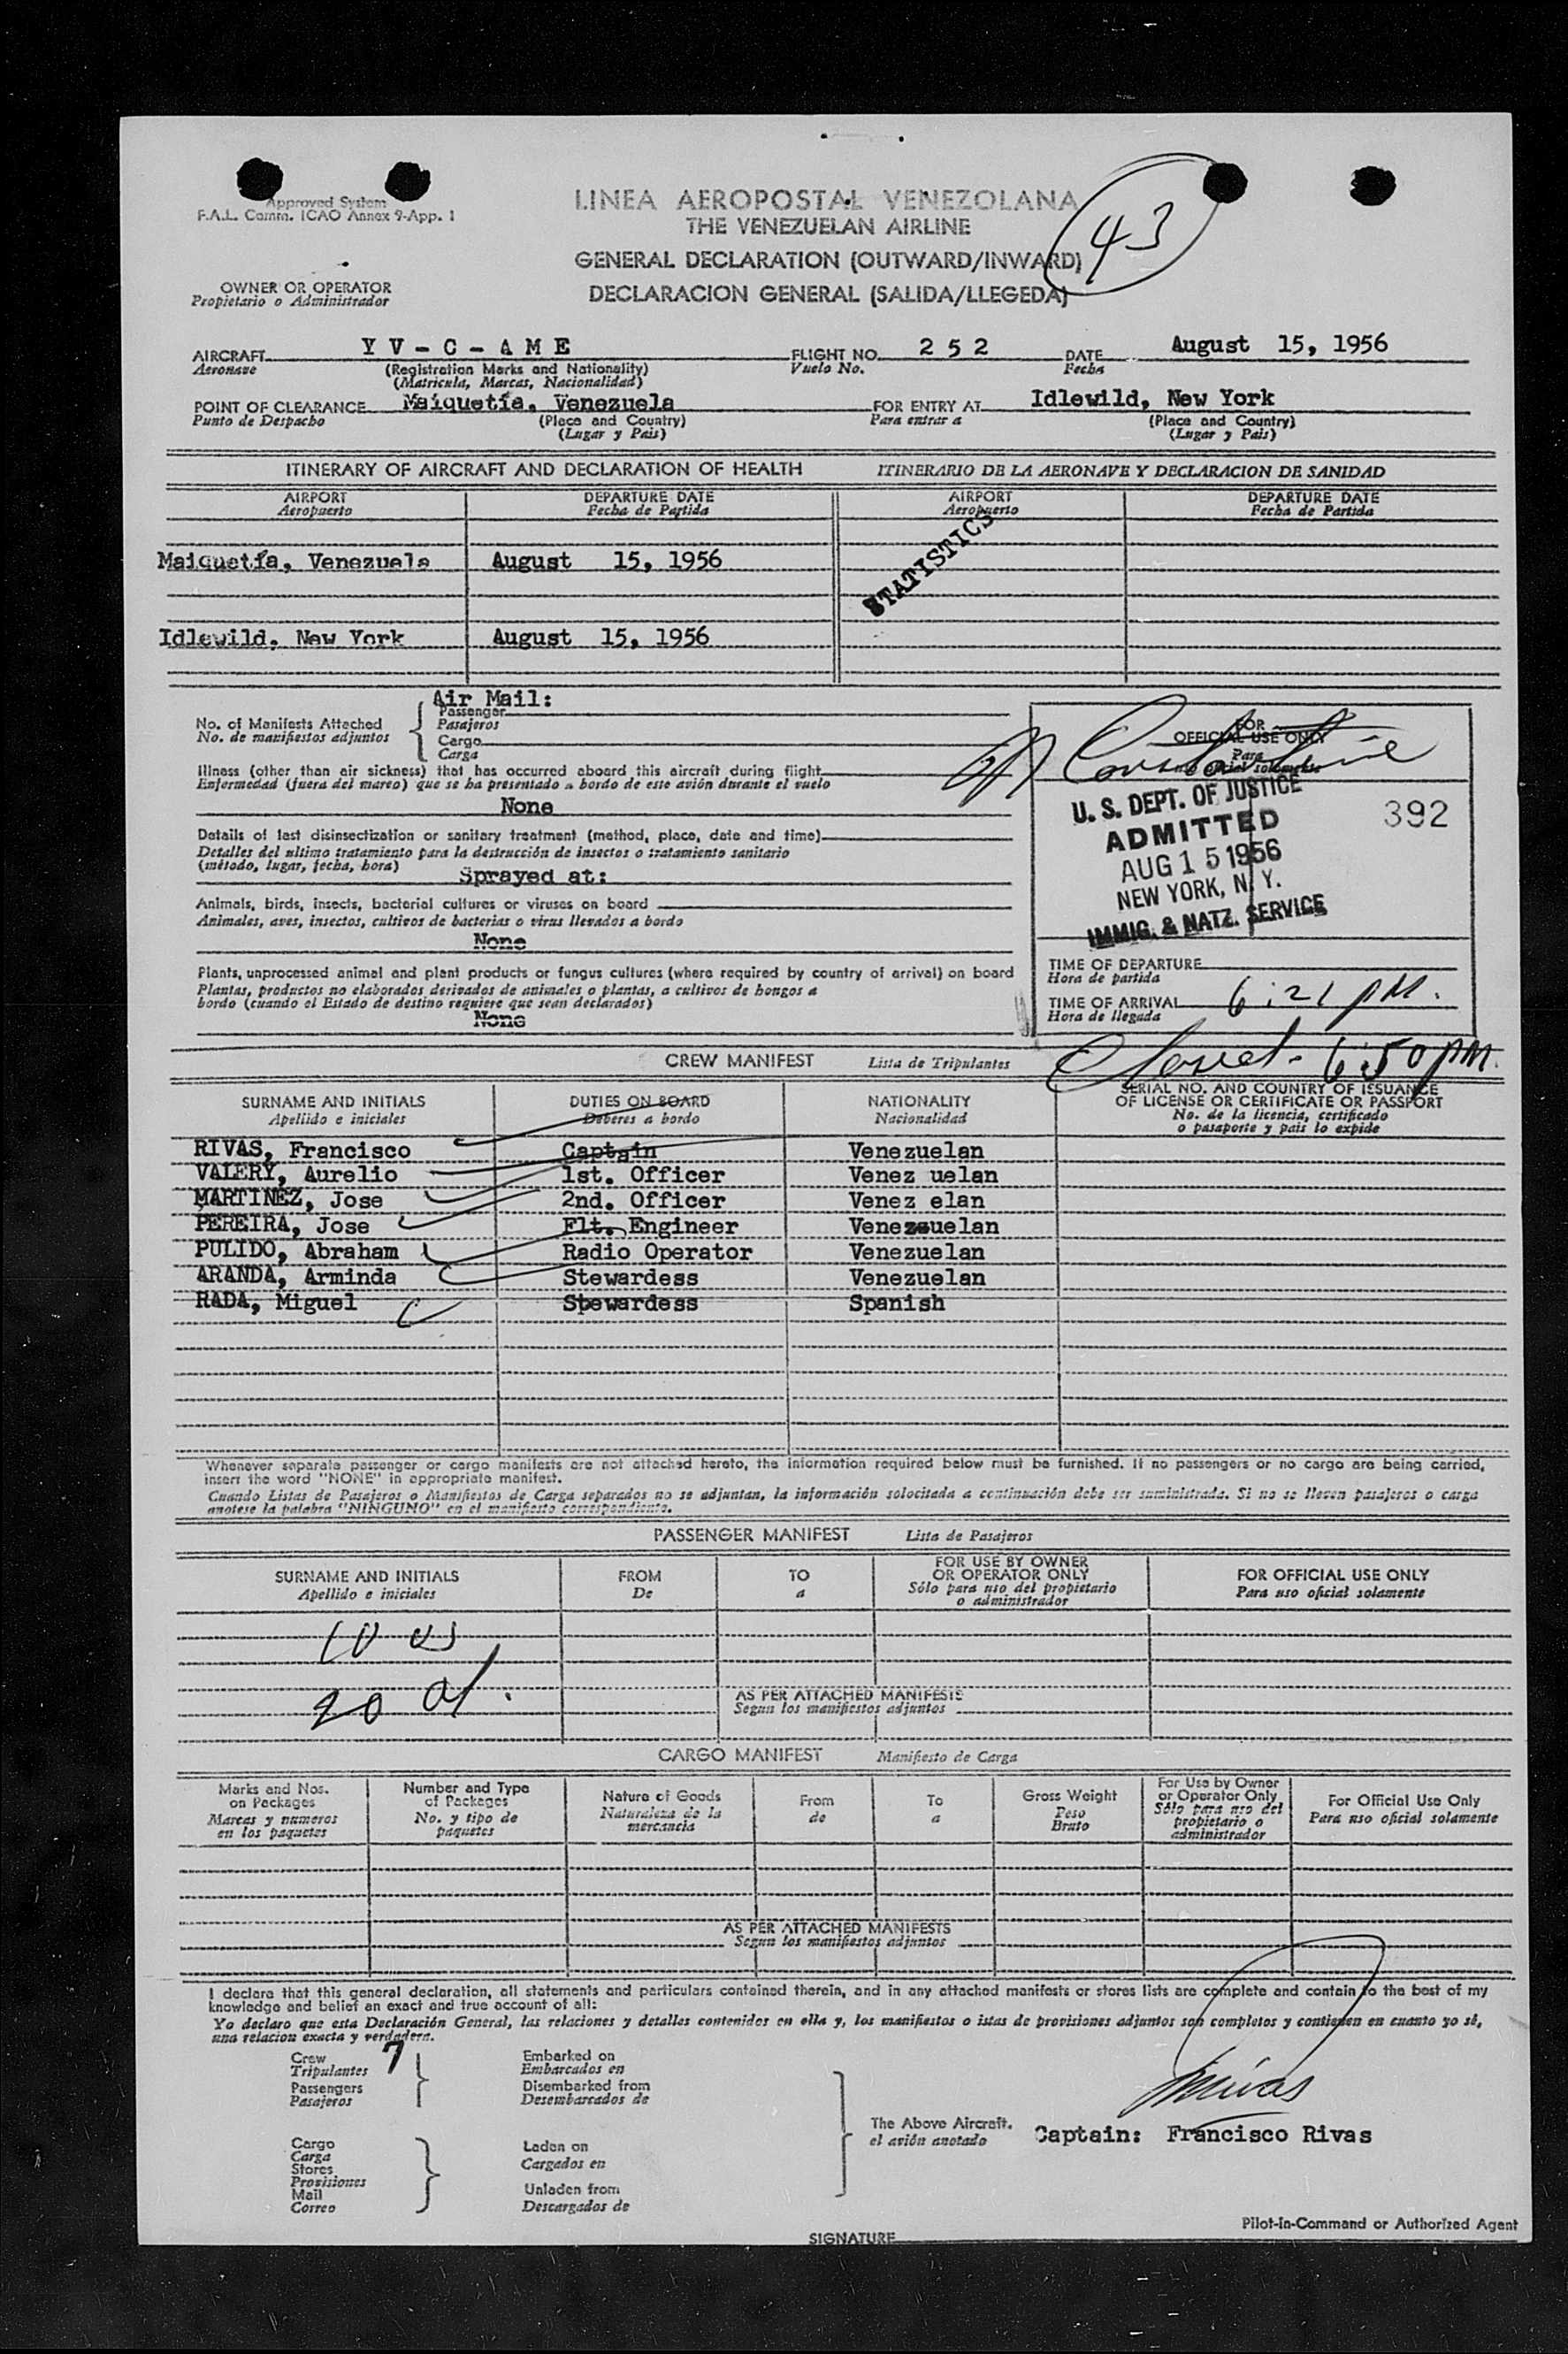 Approved System
F.A.L. Comm. ICAO Annex 9-App. 1
LINEA AEROPOSTAL VENEZOLANA
THE VENEZUELAN AIRLINE
GENERAL DECLARATION (OUTWARD/INWARD)
DECLARACION GENERAL (SALIDA/LLEGEDA)
43
OWNER OR OPERATOR
Propietario o Administrador
AIRCRAFT YV-C-AME FLIGHT NO. 252 DATE August 15, 1956
Aeronave (Registration Marks and Nationality) Vuelo No. Fecha
(Matricula, Marcas, Nacionalidad)
POINT OF CLEARANCE Maiquetía, Venezuela FOR ENTRY AT Idlewild, New York
Punto de Despacho (Place and Country) Para entrar a (Place and Country)
(Lugar y Pais) (Lugar y Pais)
ITINERARY OF AIRCRAFT AND DECLARATION OF HEALTH ITINERARIO DE LA AERONAVE Y DECLARACION DE SANIDAD
AIRPORT DEPARTURE DATE AIRPORT DEPARTURE DATE
Aeropuerto Fecha de Partida Aeropuerto Fecha de Partida
STATISTICS
Maiquetía, Venezuela August 15, 1956
Idlewild, New York August 15, 1956
Air Mail:
No. of Manifests Attached Passenger
No. de manifiestos adjuntos Pasajeros
Cargo
Carga
Illness (other than air sickness) that has occurred aboard this aircraft during flight
Enfermedad (fuera del mareo) que se ha presentado a bordo de este avión durante el vuelo
None
Details of last disinsectization or sanitary treatment (method, place, date and time)
Detalles del ultimo tratamiento para la destrucción de insectos o tratamiento sanitario
(método, lugar, fecha, hora)
Sprayed at:
Animals, birds, insects, bacterial cultures or viruses on board
Animales, aves, insectos, cultivos de bacterias o virus llevados a bordo
None
Plants, unprocessed animal and plant products or fungus cultures (where required by country of arrival) on board
Plantas, productos no elaborados derivados de animales o plantas, a cultivos de hongos a
bordo (cuando el Estado de destino requiere que sean declarados)
None
FOR
OFFICIAL USE ONLY
Para
U. S. DEPT. OF JUSTICE
ADMITTED
AUG 15 1956
NEW YORK, N. Y.
IMMIG. & NATZ. SERVICE
392
TIME OF DEPARTURE
Hora de partida
TIME OF ARRIVAL 6:21 PM.
Hora de llegada
Closed - 6:50 PM.
CREW MANIFEST Lista de Tripulantes
SURNAME AND INITIALS DUTIES ON BOARD NATIONALITY SERIAL NO. AND COUNTRY OF ISSUANCE
OF LICENSE OR CERTIFICATE OR PASSPORT
Apellido e iniciales Deberes a bordo Nacionalidad No. de la licencia, certificado
o pasaporte y pais lo expide
RIVAS, Francisco Captain Venezuelan
VALERY, Aurelio 1st. Officer Venez uelan
MARTINEZ, Jose 2nd. Officer Venez elan
PEREIRA, Jose Flt. Engineer Venezuelan
PULIDO, Abraham Radio Operator Venezuelan
ARANDA, Arminda Stewardess Venezuelan
RADA, Miguel Stewardess Spanish
Whenever separate passenger or cargo manifests are not attached hereto, the information required below must be furnished. If no passengers or no cargo are being carried,
insert the word "NONE" in appropriate manifest.
Cuando Listas de Pasajeros o Manifiestos de Carga separados no se adjuntan, la información solocitada a continuación debe ser suministrada. Si no se lleven pasajeros o carga
anotese la palabra "NINGUNO" en el manifiesto correspondiente.
PASSENGER MANIFEST Lista de Pasajeros
SURNAME AND INITIALS FROM TO FOR USE BY OWNER
OR OPERATOR ONLY FOR OFFICIAL USE ONLY
Apellido e iniciales De a Sólo para uso del propietario
o administrador Para uso oficial solamente
20
AS PER ATTACHED MANIFESTS
Segun los manifiestos adjuntos
CARGO MANIFEST Manifiesto de Carga
Marks and Nos.
on Packages
Marcas y numeros
en los paquetes
Number and Type
of Packages
No. y tipo de
paquetes
Nature of Goods
Naturaleza de la
mercancia
From
de
To
a
Gross Weight
Peso
Bruto
For Use by Owner
or Operator Only
Sólo para uso del
propietario o
administrador
For Official Use Only
Para uso oficial solamente
AS PER ATTACHED MANIFESTS
Segun los manifiestos adjuntos
I declare that this general declaration, all statements and particulars contained therein, and in any attached manifests or stores lists are complete and contain to the best of my
knowledge and belief an exact and true account of all:
Yo declaro que esta Declaración General, las relaciones y detalles contenidos en ella y, los manifiestos o istas de provisiones adjuntos son completos y contienen en cuanto yo sé,
una relacion exacta y verdadera.
Crew 7
Tripulantes
Passengers
Pasajeros
Embarked on
Embarcados en
Disembarked from
Desembarcados de
Cargo
Carga
Stores
Provisiones
Mail
Correo
Laden on
Cargados en
Unladen from
Descargados de
The Above Aircraft.
el avión anotado
Rivas
Captain: Francisco Rivas
Pilot-in-Command or Authorized Agent
SIGNATURE